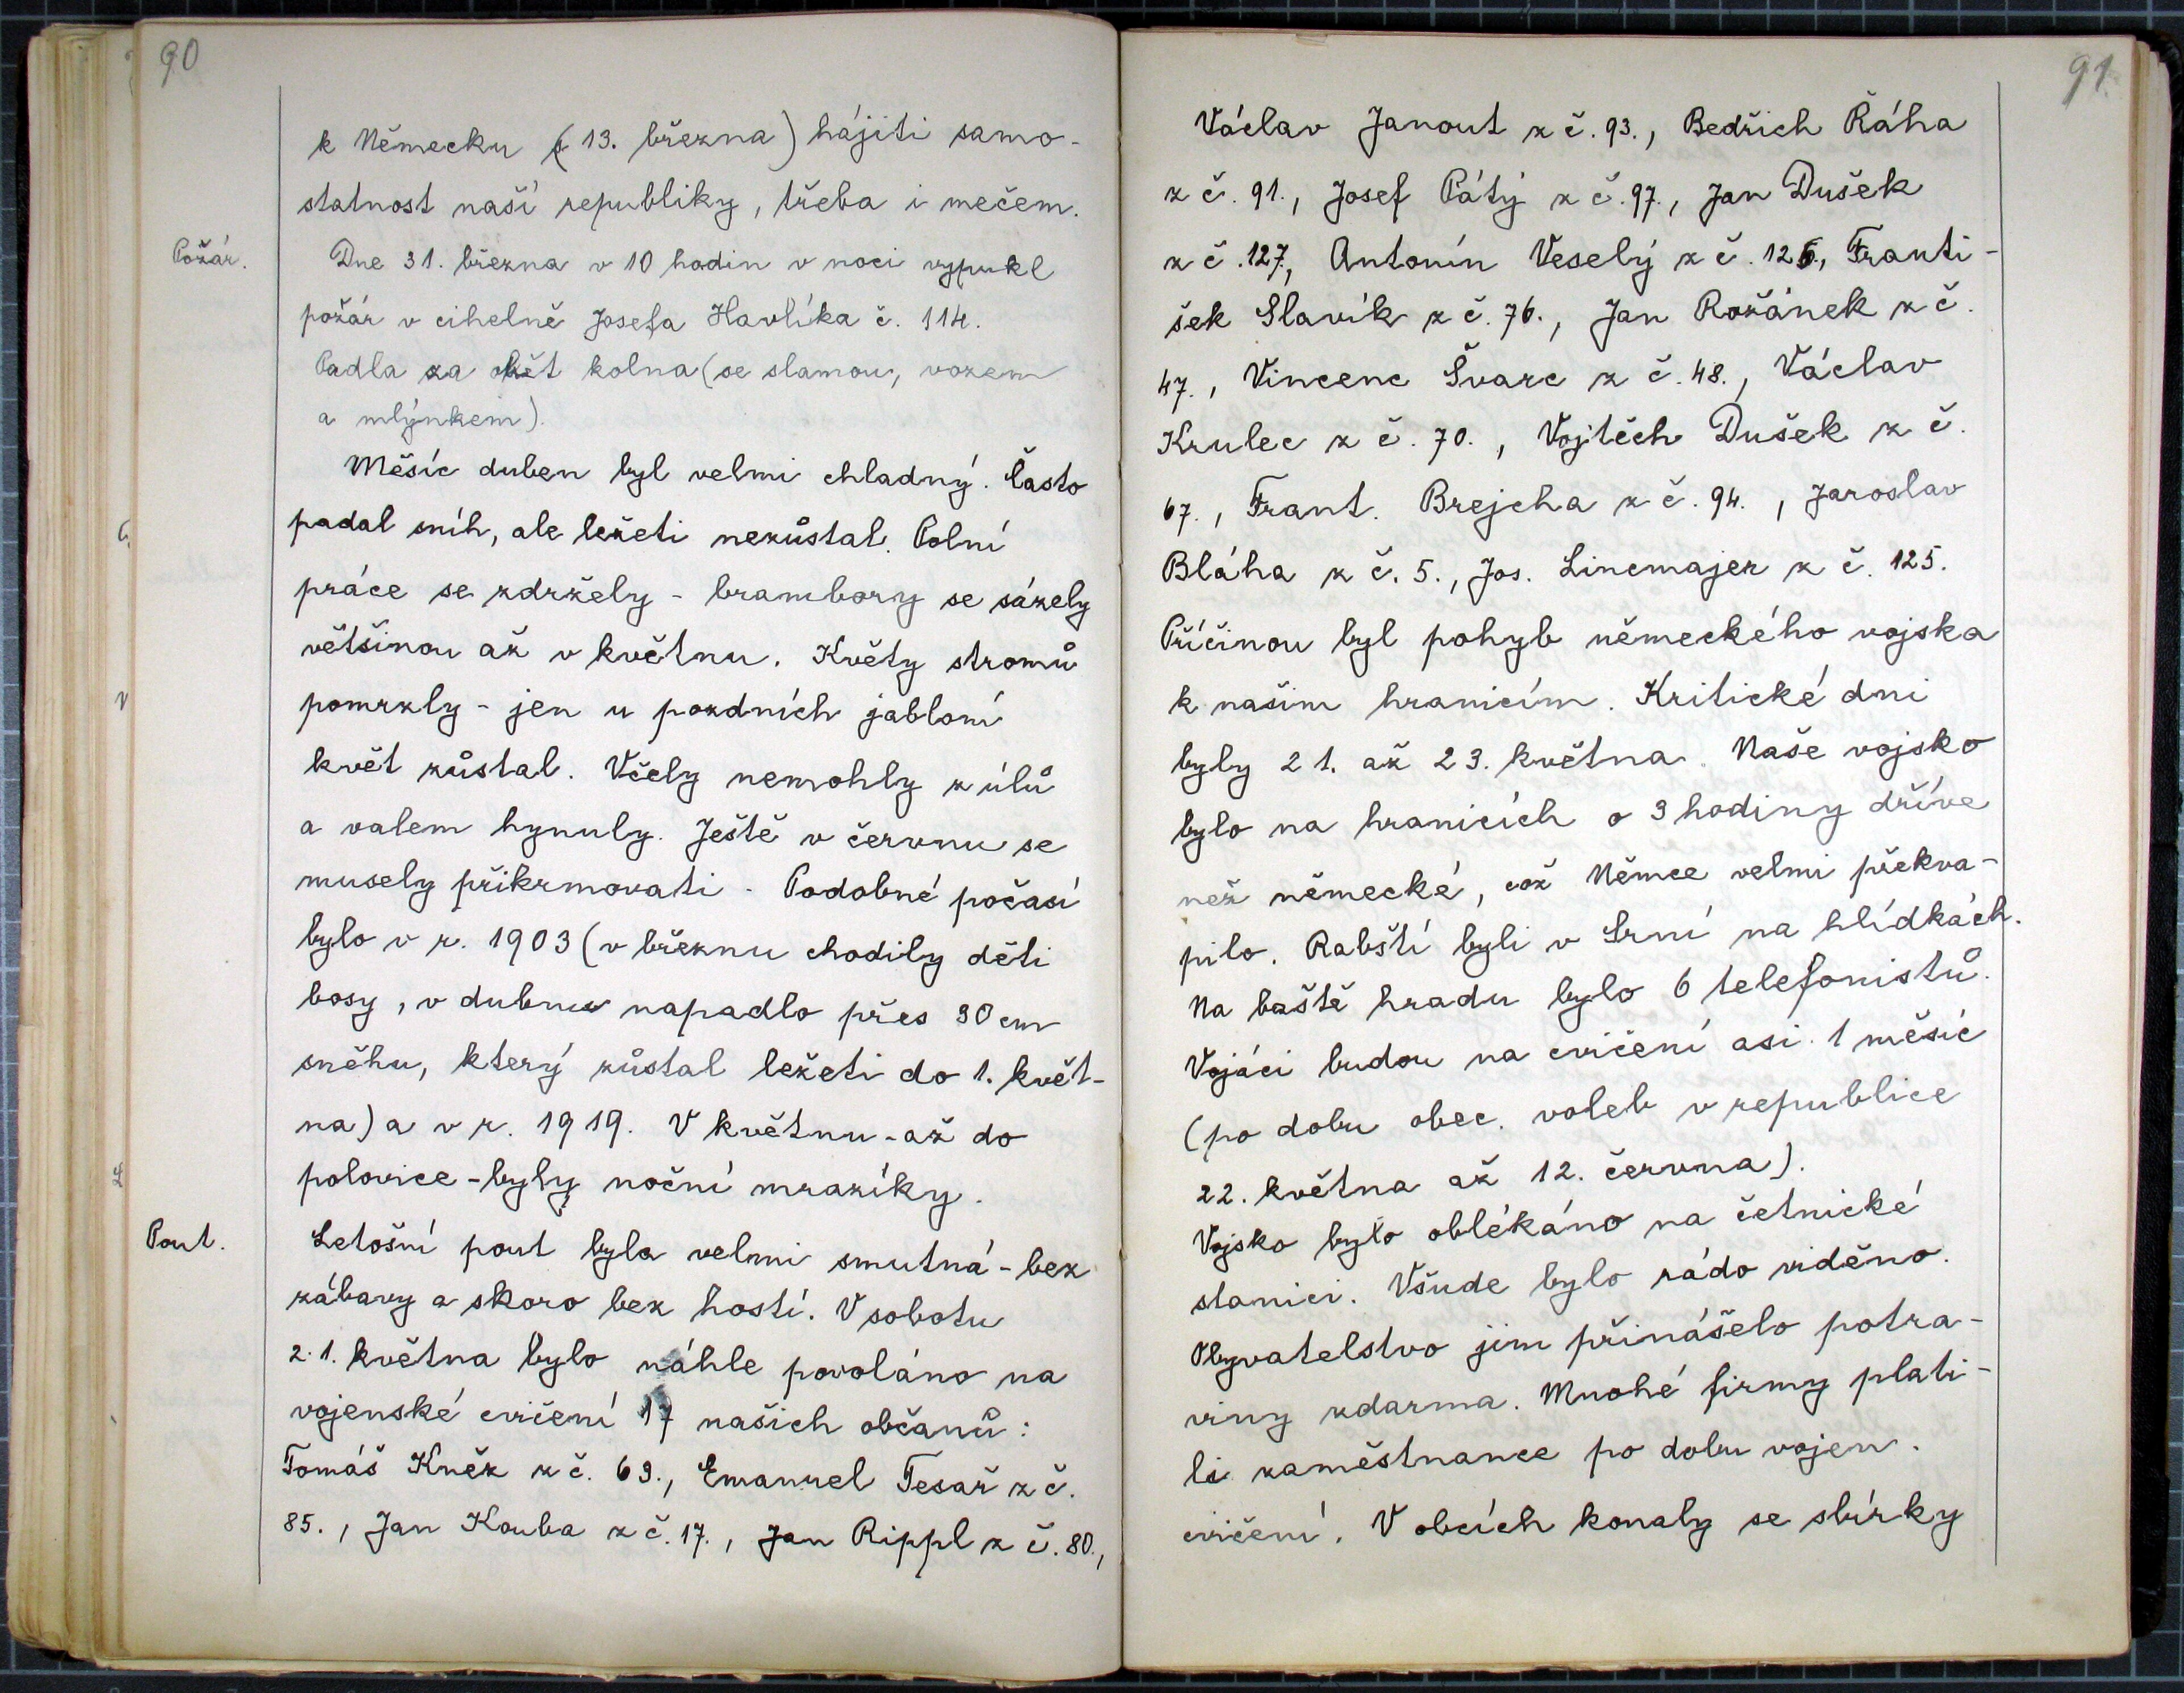 90
k Německu (13. března) hájiti samo-
statnost naší republiky, třeba i mečem.
Požár.
Dne 31. března v 10 hodin v noci vypukl
požár v cihelně Josefa Havlíka č. 114.
Padla za oběť kolna (se slamou, vozem
a mlýnkem).
Měsíc duben byl velmi chladný. Často
padal sníh, ale ležeti nezůstal. Polní
práce se zdržely - brambory se sázely
většinou až v květnu. Květy stromů
pomrzly - jen u pozdních jabloní
květ zůstal. Včely nemohly z úlů
a valem hynuly. Ještě v červnu se
musely přikrmovati. Podobné počasí
bylo v r. 1903 (v březnu chodily děti
bosy, v dubnu napadlo přes 30 cm
sněhu, který zůstal ležeti do 1. květ-
na) a v r. 1919. V květnu - až do
polovice - byly noční mrazíky.
Pout.
Letošní pout byla velmi smutná - bez
zábavy a skoro bez hostí. V sobotu
21. května bylo náhle povoláno na
vojenské cvičení 17 našich občanů:
Tomáš Kněz z č. 63., Emanuel Tesař z č.
85., Jan Kouba z č. 17., Jan Rippl z č. 80.,
91.
Václav Janout z č. 93., Bedřich Řáha
z č. 91., Josef Pátý z č. 97., Jan Dušek
z č. 127., Antonín Veselý z č. 126., Franti-
šek Slavík z č. 76., Jan Rožánek z č.
47., Vincenc Švarc z č. 48., Václav
Krulec z č. 70., Vojtěch Dušek z č.
67., Frant. Brejcha z č. 94., Jaroslav
Bláha z č. 5., Jos. Linemajer z č. 125.
Příčinou byl pohyb německého vojska
k našim hranicím. Kritické dni
byly 21. až 23. května. Naše vojsko
bylo na hranicích o 3 hodiny dříve
než německé, což Němce velmi překva-
pilo. Rabští byli v Srní na hlídkách.
Na baště hradu bylo 6 telefonistů.
Vojáci budou na cvičení asi 1 měsíc
(po dobu obec. voleb v republice
22. května až 12. června).
Vojsko bylo oblékáno na četnické
stanici. Všude bylo rádo viděno.
Obyvatelstvo jim přinášelo potra-
viny zdarma. Mnohé firmy plati-
li zaměstnance po dobu vojen.
cvičení. V obcích konaly se sbírky